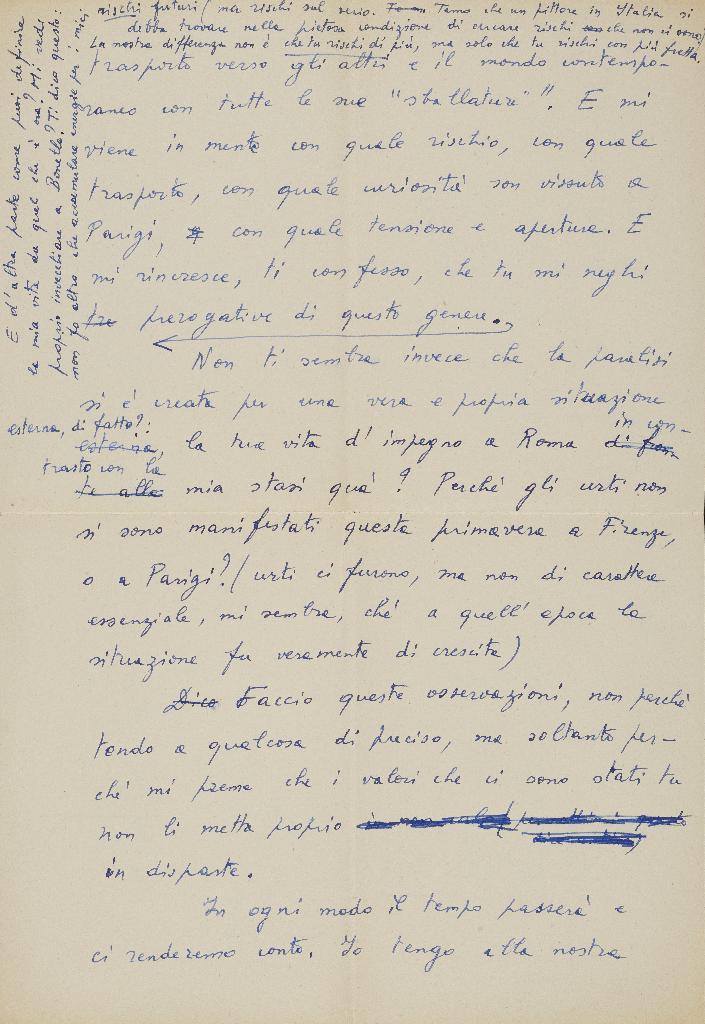 E d'altra parte come puoi definire
la mia vita da quel che è ora? Mi vedi
proprio invecchiare a Bonella? Ti dico questo:
non fo altro che accumulare energie per i miei
rischi futuri (ma rischi sul serio. Temo che un pittore in Italia, si
debba trovare nella pietosa condizione di cercare rischi che non ci sono)
La nostra differenza non è che tu rischi di più, ma solo che tu rischi con più fretta.
trasporto verso gli altri e il mondo contempo-
raneo con tutte le sue "sballature". E mi
viene in mente con quale rischio, con quale
trasporto, con quale curiosità son vissuto a
Parigi, con quale tensione e apertura. E
mi rincresce, ti confesso, che tu mi neghi
prerogative di questo genere.
Non ti sembra invece che la paralisi
si è creata per una vera e propria situazione
esterna, di fatto?:
la tua vita d'impegno a Roma in con-
trasto con la
mia stasi quà? Perché gli urti non
si sono manifestati questa primavera a Firenze,
o a Parigi? (urti ci furono, ma non di carattere
essenziale, mi sembra, ché a quell'epoca la
situazione fu veramente di crescita)
Dico Faccio queste osservazioni, non perché
tendo a qualcosa di preciso, ma soltanto per-
ché mi preme che i valori che ci sono stati tu
non li metta proprio
in disparte.
In ogni modo il tempo passerà e
ci renderemo conto. Io tengo alla nostra